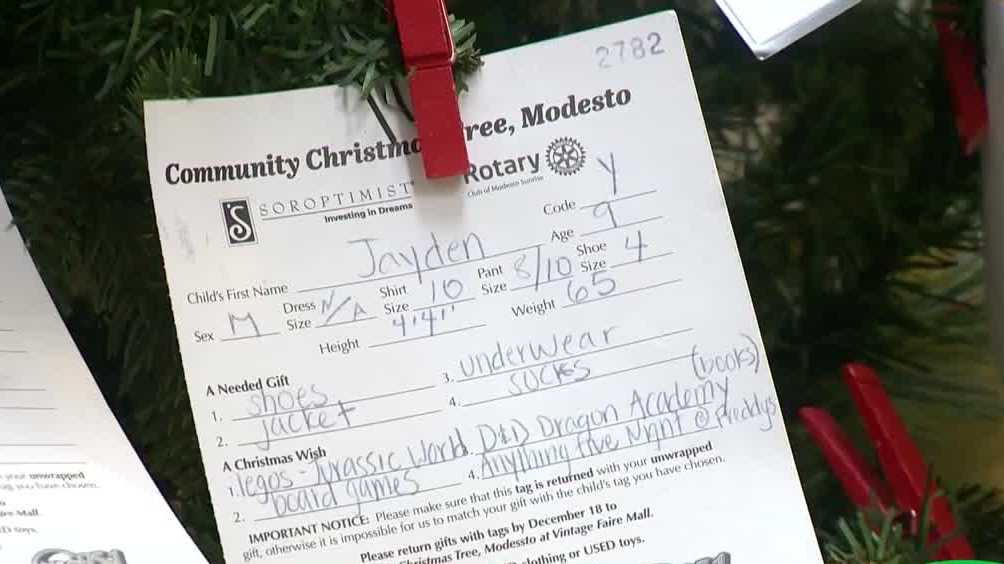 2782
Community Christma ree, Modesto
SOROPTIMIST
Investing in Dreams
Rotary
Club of Modesto Sunrise
Code Y
Age 9
Child's First Name Jayden
Sex M Dress Size N/A Shirt Size 10 Pant Size 8/10 Shoe Size 4
Height 4'4" Weight 65
A Needed Gift
1. shoes 3. underwear
2. jacket 4. socks
A Christmas Wish
1. legos - Jurassic World . D&D Dragon Academy (books)
2. board games 4. Anything five Night @ freddys
IMPORTANT NOTICE: Please make sure that this tag is returned with your unwrapped
gift, otherwise it is impossible for us to match your gift with the child's tag you have chosen.
Please return gifts with tags by December 18 to
hristmas Tree, Modessto at Vintage Faire Mall.
clothing or USED toys.
your unwrapped
tag you have chosen.
to
ire Mall.
D toys.